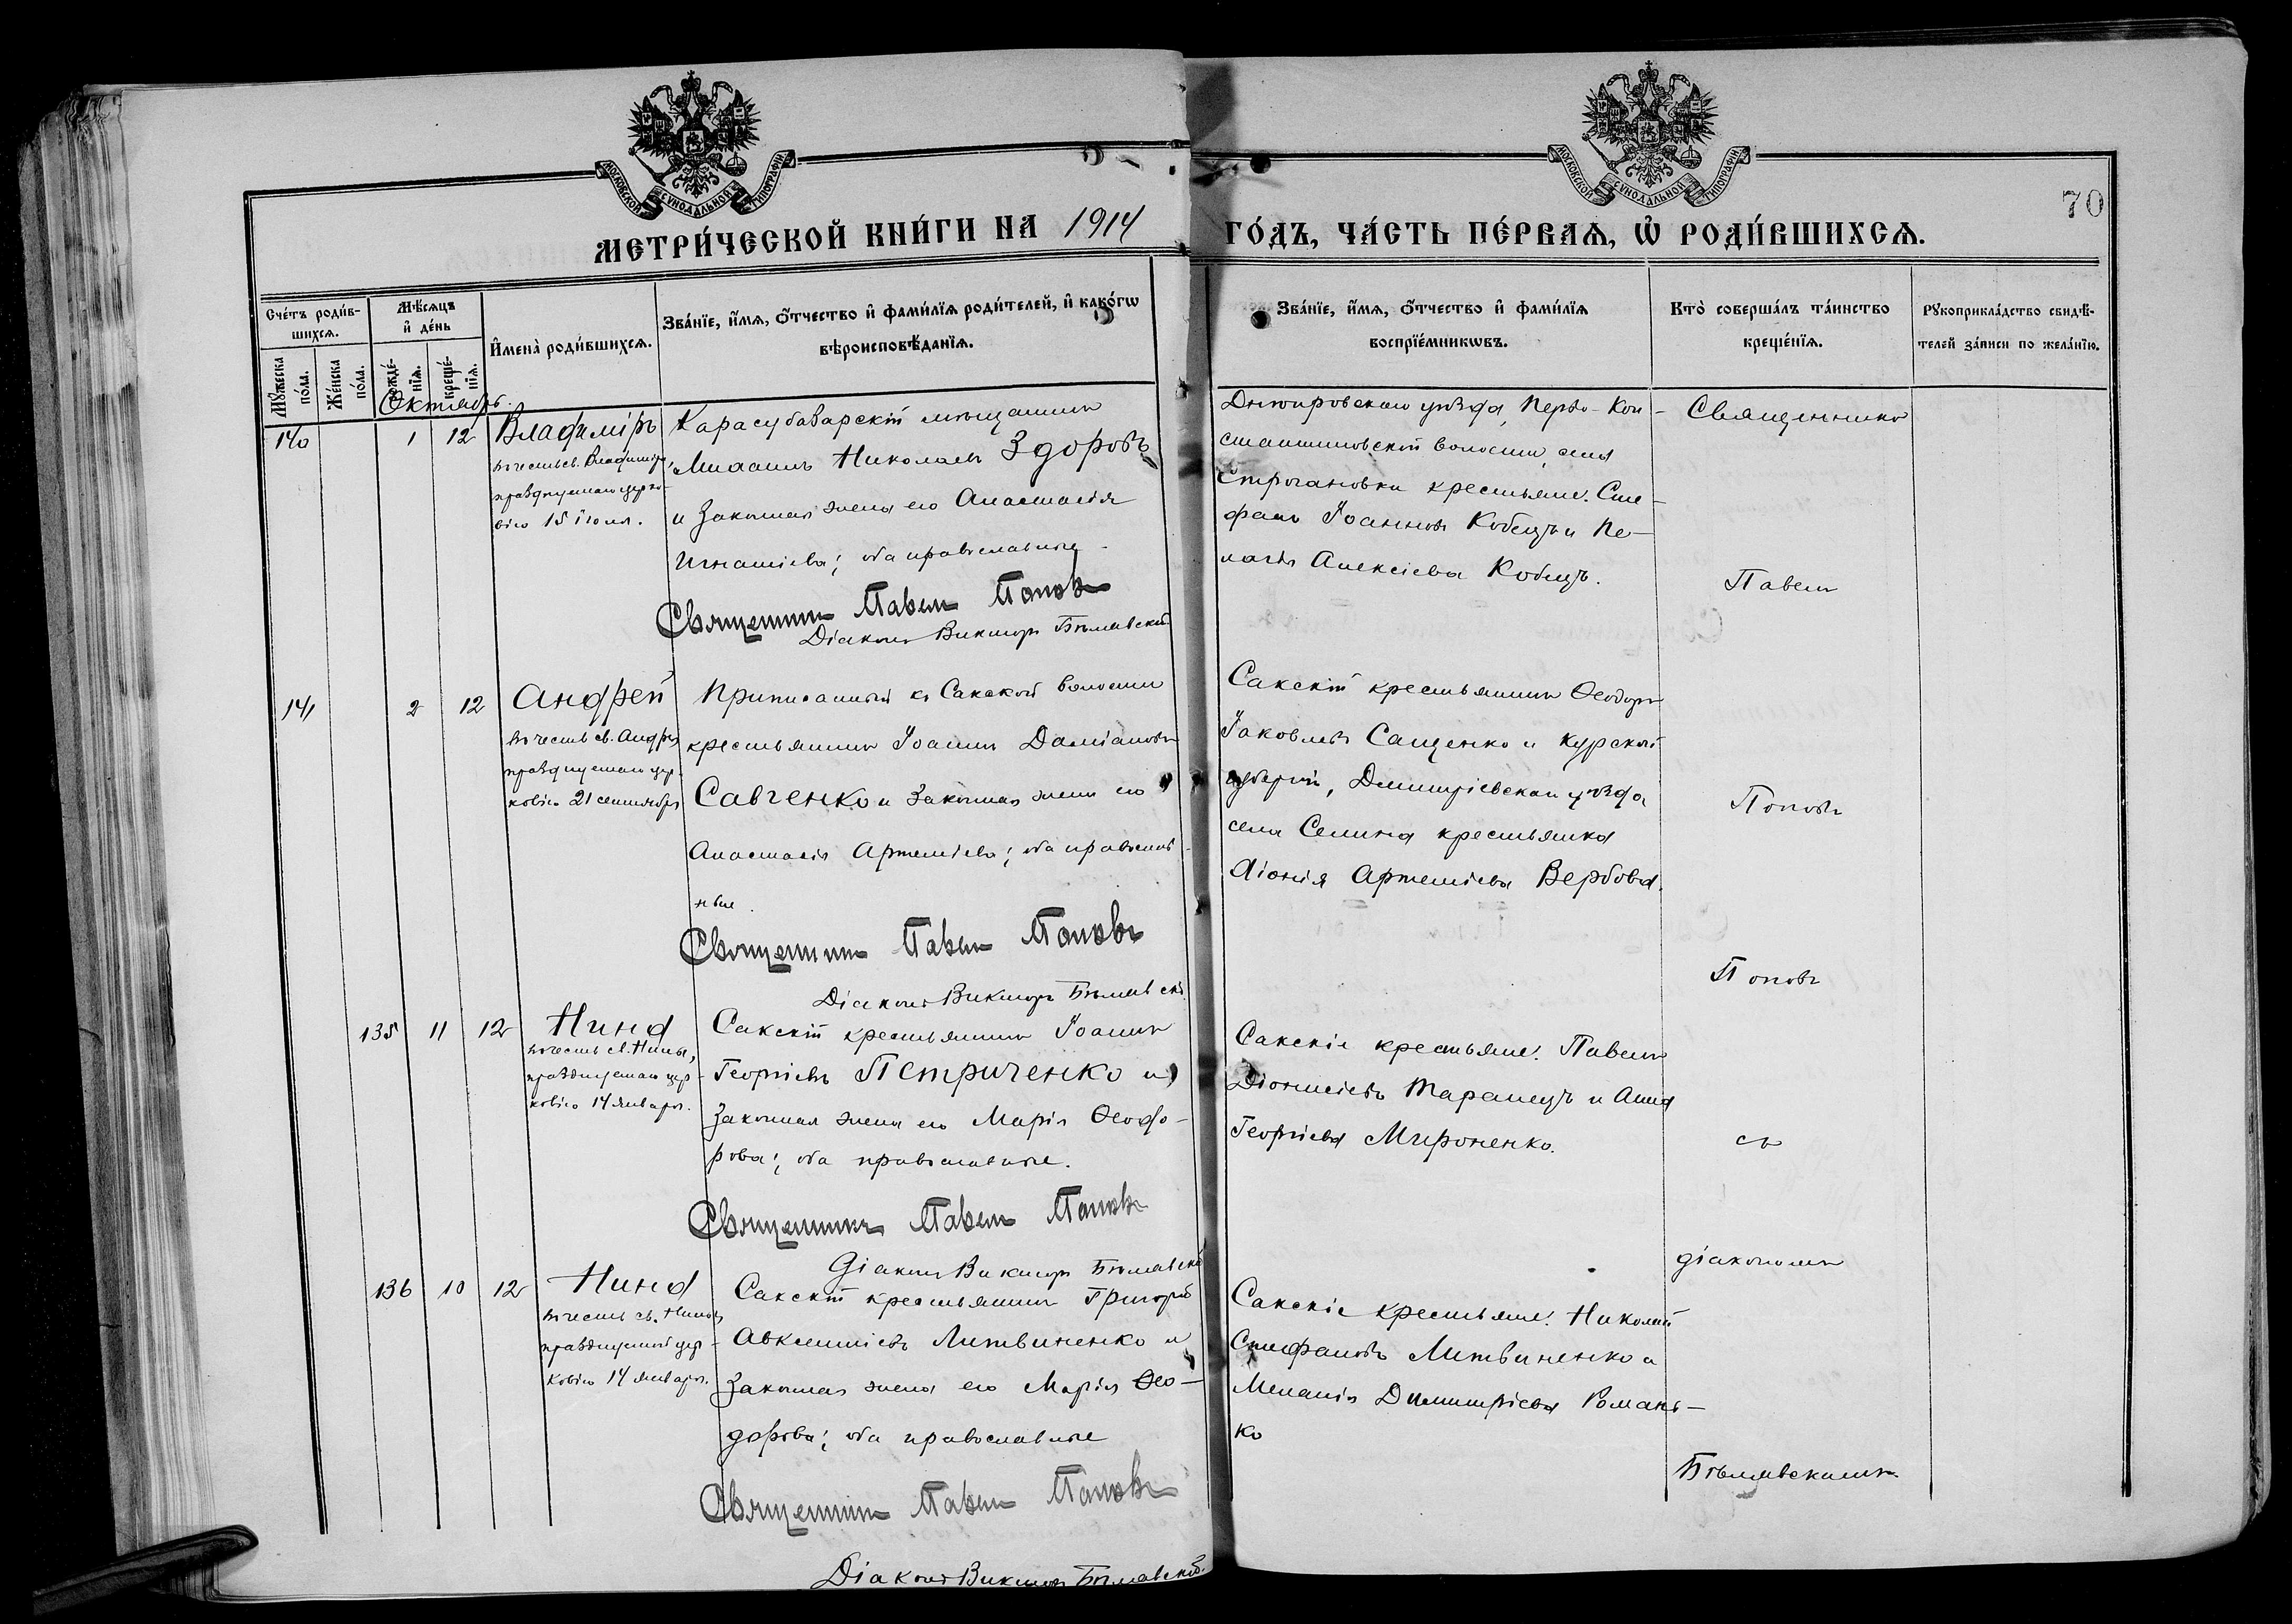 МОСКОВСКОЙ СѴНОДАЛЬНОЙ ТИПОГРАФІИ
МОСКОВСКОЙ СѴНОДАЛЬНОЙ ТИПОГРАФІИ
70
МЕТРИ́ЧЕСКОЙ КНИ́ГИ НА 1914 ГО́ДЪ, ЧА́СТЬ ПЕ́РВАѦ, Ѡ҆ РОДИ́ВШИХСѦ.
Сче́тъ роди́в-
шихсѧ.
Мꙋ́жеска по́ла.
Же́нска по́ла.
Мѣ́сѧцъ
и҆ де́нь
рожде́-
нїѧ.
креще́-
нїѧ.
И҆мена̀ роди́вшихсѧ.
Зва́нїе, и҆́мѧ, ѻ҆́тчество и҆ фами́лїѧ роди́телей, и҆ како́гѡ
вѣроисповѣ́данїѧ.
Зва́нїе, и҆́мѧ, ѻ҆́тчество и҆ фами́лїѧ
воспрїе́мникѡвъ.
Кто̀ соверша́лъ та́инство
креще́нїѧ.
Рꙋкоприкла́дство свидѣ́-
телей за́писи по жела́нїю.
Октябрь.
140 1 12
Владиміръ
въ честь св. Владиміра,
празднуемаго церко-
вію 15 іюля.
Карасубазарскій мѣщанинъ
Михаилъ Николаевъ Здоровъ
и законная жена его Анастасія
Игнатіева; оба православные.
Священникъ Павелъ Поповъ
Діаконъ Викторъ Бѣлявскій
Днѣпровскаго уѣзда, Перво-Кон-
стантиновской волости, села
Строгановки крестьяне: Сте-
фанъ Іоанновъ Кобецъ и Пе-
лагія Алексіева Кобецъ.
Священникъ
Павелъ
141 2 12
Андрей
въ честь св. Андрея
празднуемаго цер-
ковію 21 сентября
Приписанный къ Сакской волости
крестьянинъ Іоаннъ Даміановъ
Савченко и законная жена его
Анастасія Артеміева; оба православ-
ные.
Священникъ Павелъ Поповъ
Діаконъ Викторъ Бѣлявскій
Сакскій крестьянинъ Ѳеодоръ
Іаковлевъ Сащенко и Курской
губерніи, Димитріевскаго уѣзда,
села Селина крестьянка
Артеміева Вербова.
Поповъ
Поповъ
135 11 12
Нина
въ честь св. Нины,
празднуемаго цер-
ковію 14 января.
Сакскій крестьянинъ Іоаннъ
Георгіевъ Петриченко и
законная жена его Марія Ѳеодо-
рова; оба православные.
Священникъ Павелъ Поповъ
Діаконъ Викторъ Бѣлявскій
Сакскіе крестьяне: Павелъ
Діонисіевъ Таранецъ и Анна
Георгіева Мироненко.
съ
136 10 12
Нина
въ честь св. Нины
празднуемой цер-
ковію 14 января.
Сакскій крестьянинъ Григорій
Авксентіевъ Литвиненко и
законная жена его Марія Ѳео-
дорова; оба православные
Священникъ Павелъ Поповъ
Діаконъ Викторъ Бѣлявскій.
Сакскіе крестьяне: Николай
Стефановъ Литвиненко и
Меланія Димитріева Романь-
ко
діакономъ
Бѣлявскимъ.